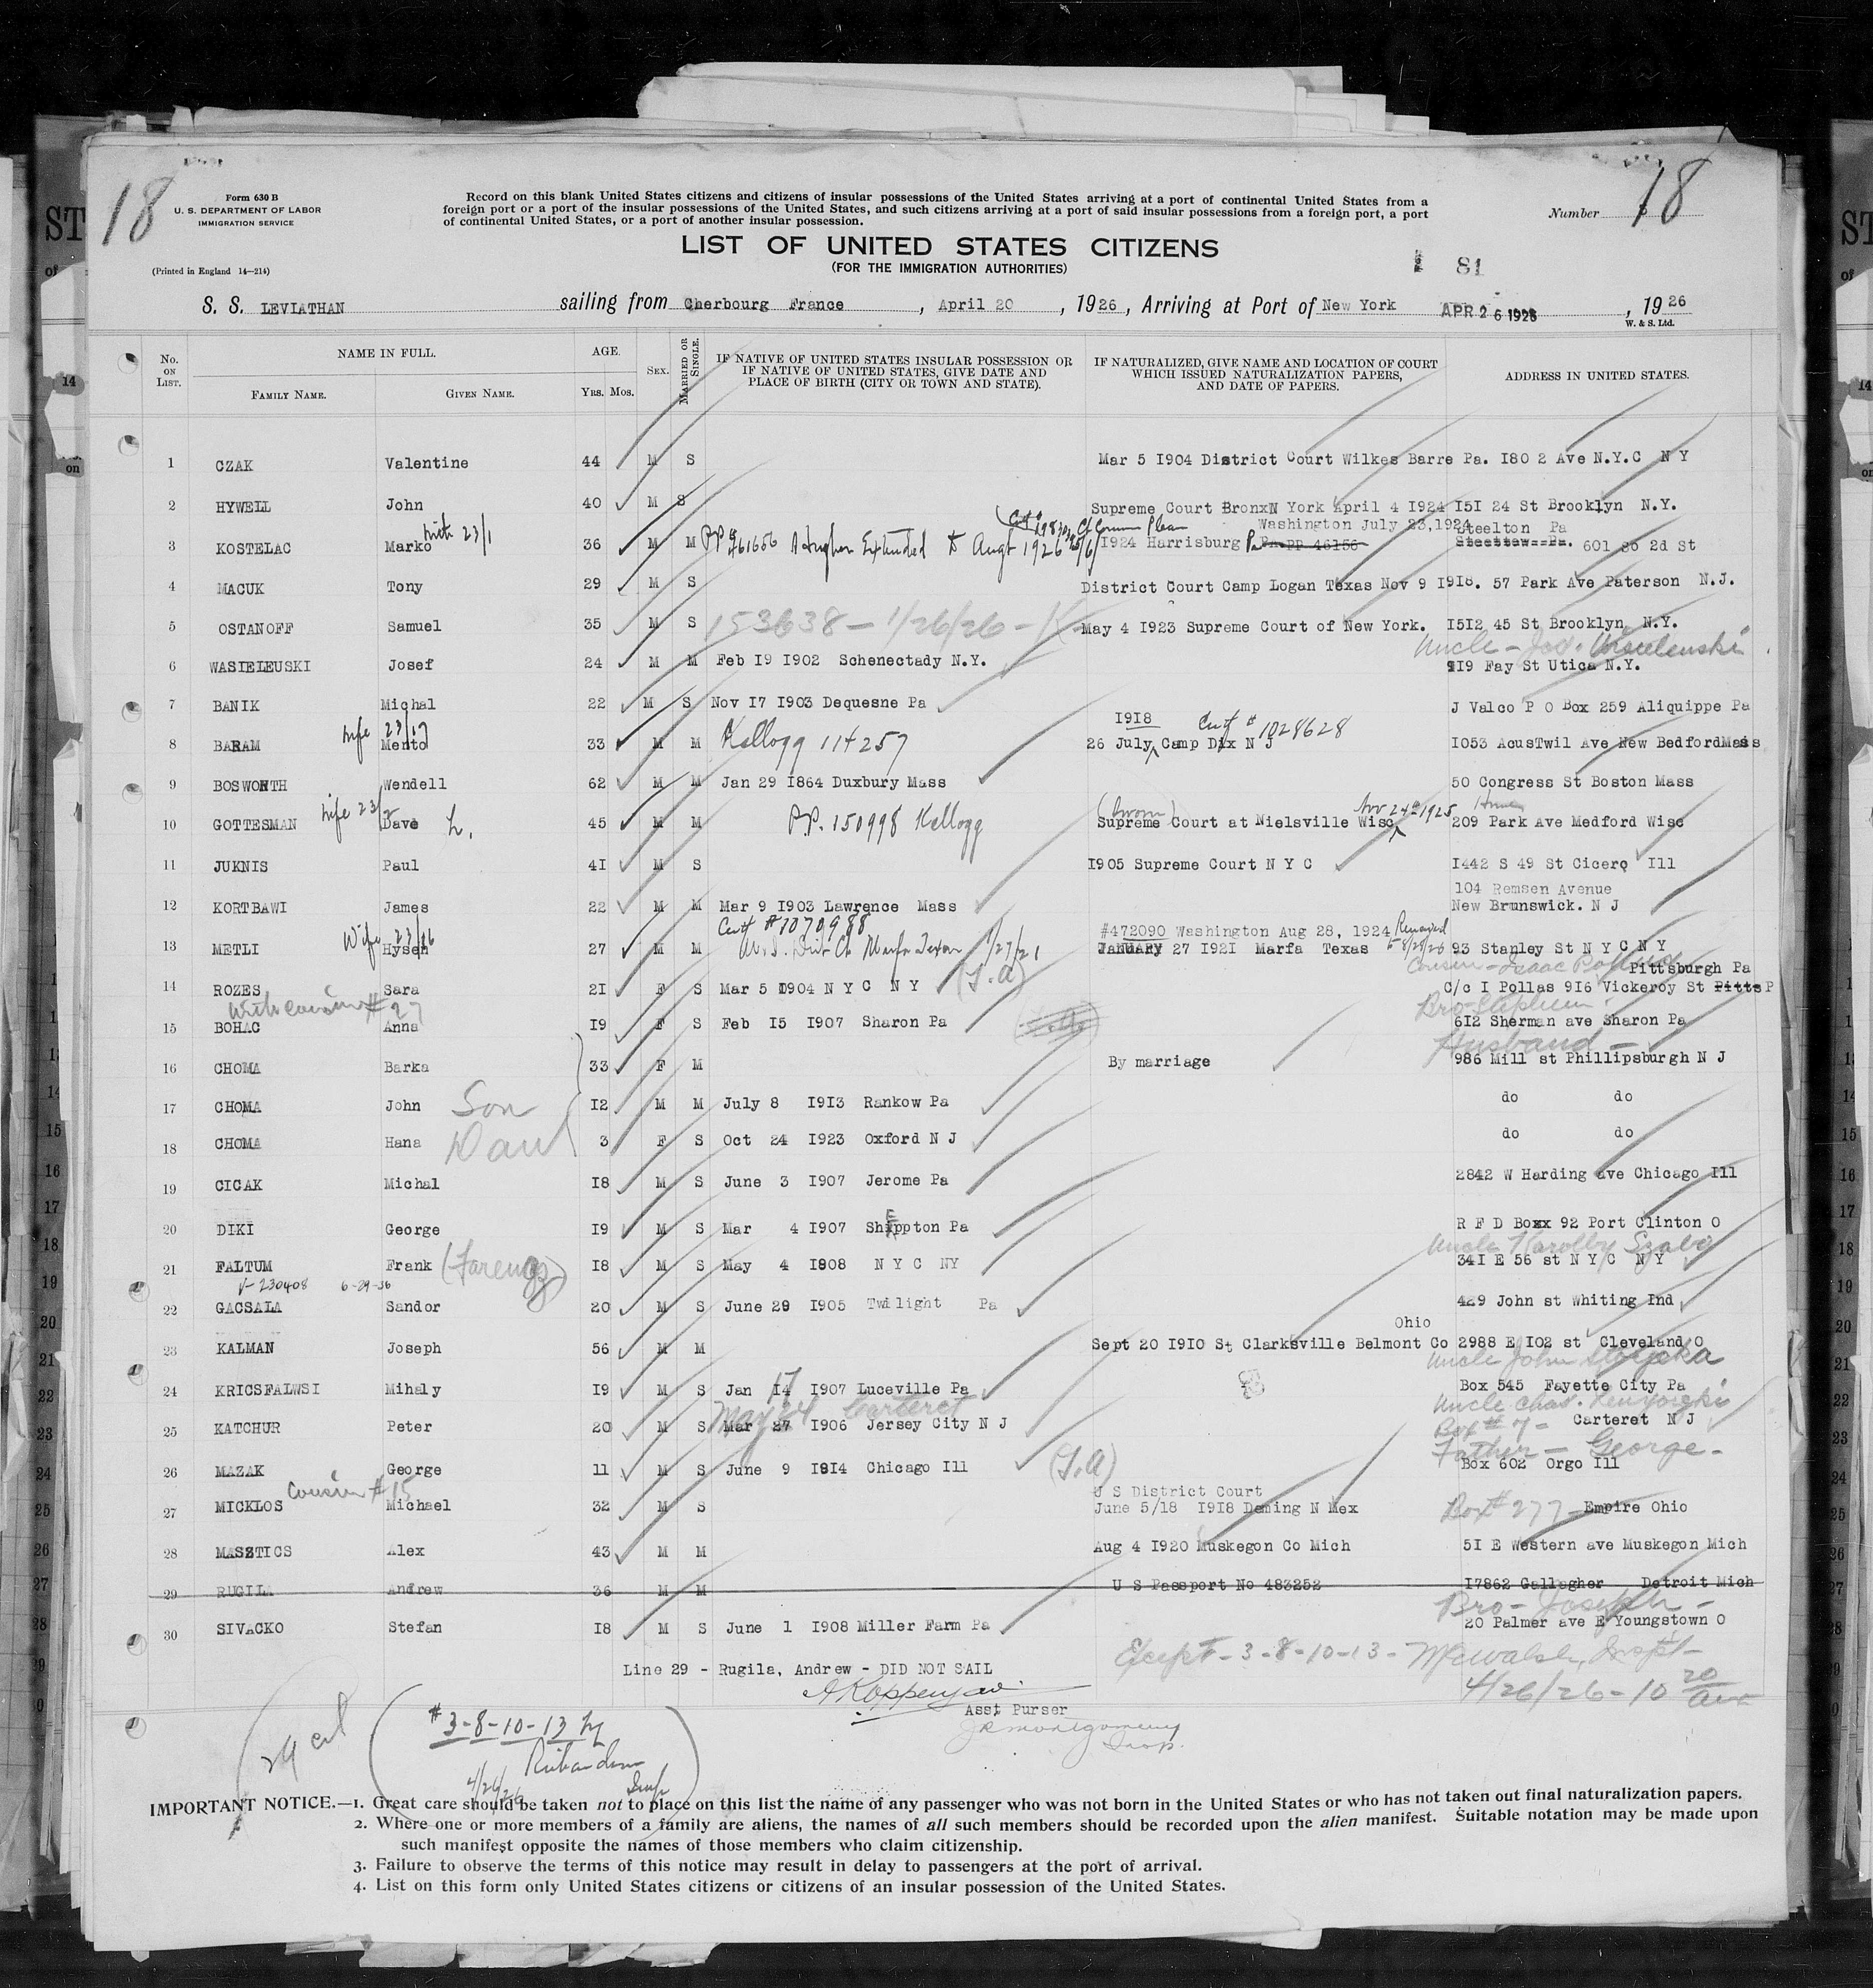 18
Form 630 B
U. S. DEPARTMENT OF LABOR
IMMIGRATION SERVICE
(Printed in England 14—214)
Record on this blank United States citizens and citizens of insular possessions of the United States arriving at a port of continental United States from a
foreign port or a port of the insular possessions of the United States, and such citizens arriving at a port of said insular possessions from a foreign port, a port
of continental United States, or a port of another insular possession.
Number 18
LIST OF UNITED STATES CITIZENS
(FOR THE IMMIGRATION AUTHORITIES)
81
S. S. LEVIATHAN sailing from Cherbourg France, April 20, 1926, Arriving at Port of New York APR 26 1926, 1926
W. & S. Ltd.
No. ON LIST. NAME IN FULL. FAMILY NAME. GIVEN NAME. AGE. Yrs. Mos. SEX. MARRIED OR SINGLE.
IF NATIVE OF UNITED STATES INSULAR POSSESSION OR IF NATIVE OF UNITED STATES, GIVE DATE AND PLACE OF BIRTH (CITY OR TOWN AND STATE).
IF NATURALIZED, GIVE NAME AND LOCATION OF COURT WHICH ISSUED NATURALIZATION PAPERS, AND DATE OF PAPERS.
ADDRESS IN UNITED STATES.
1 CZAK Valentine 44 M S Mar 5 1904 District Court Wilkes Barre Pa. 180 2 Ave N.Y.C N Y
2 HYWELL John 40 M S Supreme Court BronxN York April 4 1924 151 24 St Brooklyn N.Y.
Washington July 23,1924 Steelton Pa
3 KOSTELAC Marko 23/1 36 M M PP 461656 Extended to Augt 1926 1924 Harrisburg Pa PP 46156 601 so 2d St
4 MACUK Tony 29 M S District Court Camp Logan Texas Nov 9 1918. 57 Park Ave Paterson N.J.
5 OSTANOFF Samuel 35 M S 153638 - 1/26/26 - May 4 1923 Supreme Court of New York. 1512 45 St Brooklyn N.Y.
Uncle - Jos.
6 WASIELEUSKI Josef 24 M M Feb 19 1902 Schenectady N.Y. 919 Fay St Utica N.Y.
7 BANIK Michal 22 M S Nov 17 1903 Dequesne Pa J Valco P O Box 259 Aliquippe Pa
wife 23/17 1918 Cert # 1028628
8 BARAM Mento 33 M M Kellogg 114257 26 July Camp Dix N J 1053 AcusTwil Ave New BedfordMass
9 BOSWORTH Wendell 62 M M Jan 29 1864 Duxbury Mass 50 Congress St Boston Mass
wife 23/2 (Sworn) Nov 24th 1925 Home
10 GOTTESMAN Dave L. 45 M M PP. 150998 Kellogg Supreme Court at Nielsville Wisc 209 Park Ave Medford Wisc
11 JUKNIS Paul 41 M S 1905 Supreme Court N Y C 1442 S 49 St Cicero Ill
104 Remsen Avenue
12 KORTBAWI James 22 M M Mar 9 1903 Lawrence Mass New Brunswick. N J
Cert #1070988 #472090 Washington Aug 28, 1924 Renewed
13 METLI Hysen Wife 23/16 27 M M U.S. Dist Ct Marfa Texas 1/27/21 January 27 1921 Marfa Texas 93 Stanley St N Y C N Y
Cousin - Isaac Pittsburgh Pa
14 ROZES Sara 21 F S Mar 5 1904 N Y C N Y (T.A) C/c I Pollas 916 Vickeroy St Pitts P
With cousin # 27 Bro Stephen
15 BOHAC Anna 19 F S Feb 15 1907 Sharon Pa 612 Sherman ave Sharon Pa
Husband -
16 CHOMA Barka 33 F M By marriage 986 Mill st Phillipsburgh N J
17 CHOMA John Son 12 M M July 8 1913 Rankow Pa do do
18 CHOMA Hana Dau 3 F S Oct 24 1923 Oxford N J do do
19 CICAK Michal 18 M S June 3 1907 Jerome Pa 2842 W Harding ave Chicago Ill
20 DIKI George 19 M S Mar 4 1907 Sheppton Pa R F D Boxx 92 Port Clinton O
Uncle Szabo
21 FALTUM Frank 18 M S May 4 1908 N Y C NY 341 E 56 st N Y C N Y
V-230408 6-29-36
22 GACSALA Sandor 20 M S June 29 1905 Twilight Pa 429 John st Whiting Ind
Ohio
23 KALMAN Joseph 56 M M Sept 20 1910 St Clarksville Belmont Co 2988 E 102 st Cleveland O
Uncle John
24 KRICSFALWSI Mihaly 19 M S Jan 14 17 1907 Luceville Pa Box 545 Fayette City Pa
May 24 Carteret Uncle Chas.
25 KATCHUR Peter 20 M S Mar 27 1906 Jersey City N J Box #7 - Carteret N J
Father - George -
26 MAZAK George 11 M S June 9 1914 Chicago Ill (T.A) Box 602 Orgo Ill
Cousin #15 U S District Court
27 MICKLOS Michael 32 M S June 5/18 1918 Deming N Mex Box # 277 - Empire Ohio
28 MASZTICS Alex 43 M M Aug 4 1920 Muskegon Co Mich 51 E Western ave Muskegon Mich
29 RUGILA Andrew 36 M M U S Passport No 483252 17862 Gallagher Detroit Mich
Bro - Joseph -
30 SIVACKO Stefan 18 M S June 1 1908 Miller Farm Pa 20 Palmer ave E Youngstown O
Line 29 - Rugila, Andrew - DID NOT SAIL
Except - 3-8-10-13 - Inspt -
4/26/26 - 10 20 am
Asst Purser
JR Montgomery
Insp.
#3-8-10-13
4/26/26
IMPORTANT NOTICE.—1. Great care should be taken not to place on this list the name of any passenger who was not born in the United States or who has not taken out final naturalization papers.
2. Where one or more members of a family are aliens, the names of all such members should be recorded upon the alien manifest. Suitable notation may be made upon
such manifest opposite the names of those members who claim citizenship.
3. Failure to observe the terms of this notice may result in delay to passengers at the port of arrival.
4. List on this form only United States citizens or citizens of an insular possession of the United States.